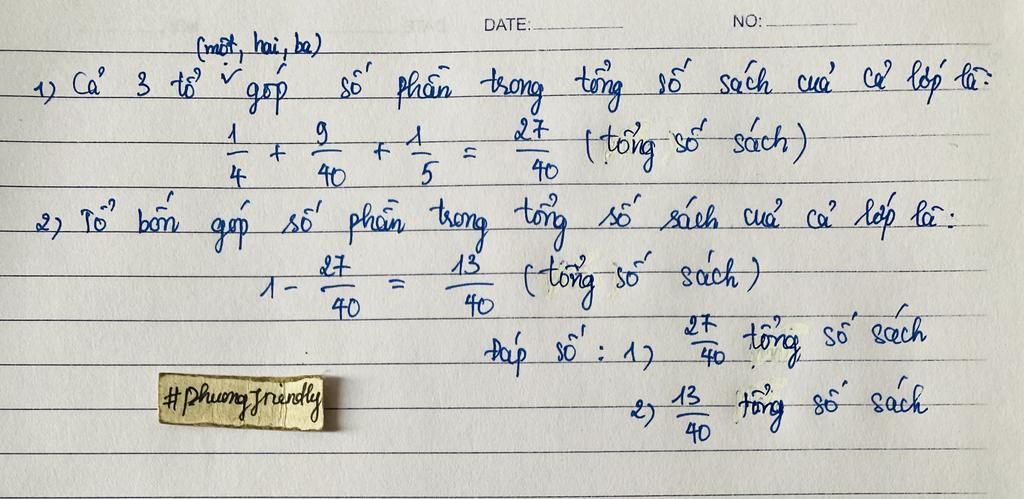 DATE: NO:
(một, hai, ba)
1) Cả 3 tổ ✓ góp số phần trong tổng số sách cuả cả lớp là:
1/4 + 9/40 + 1/5 = 27/40 (tổng số sách)
2) Tổ bốn góp số phần trong tổng số sách cuả cả lớp là:
1 - 27/40 = 13/40 (tổng số sách)
Đáp số: 1) 27/40 tổng số sách
2) 13/40 tổng số sách
#phuongfriendly